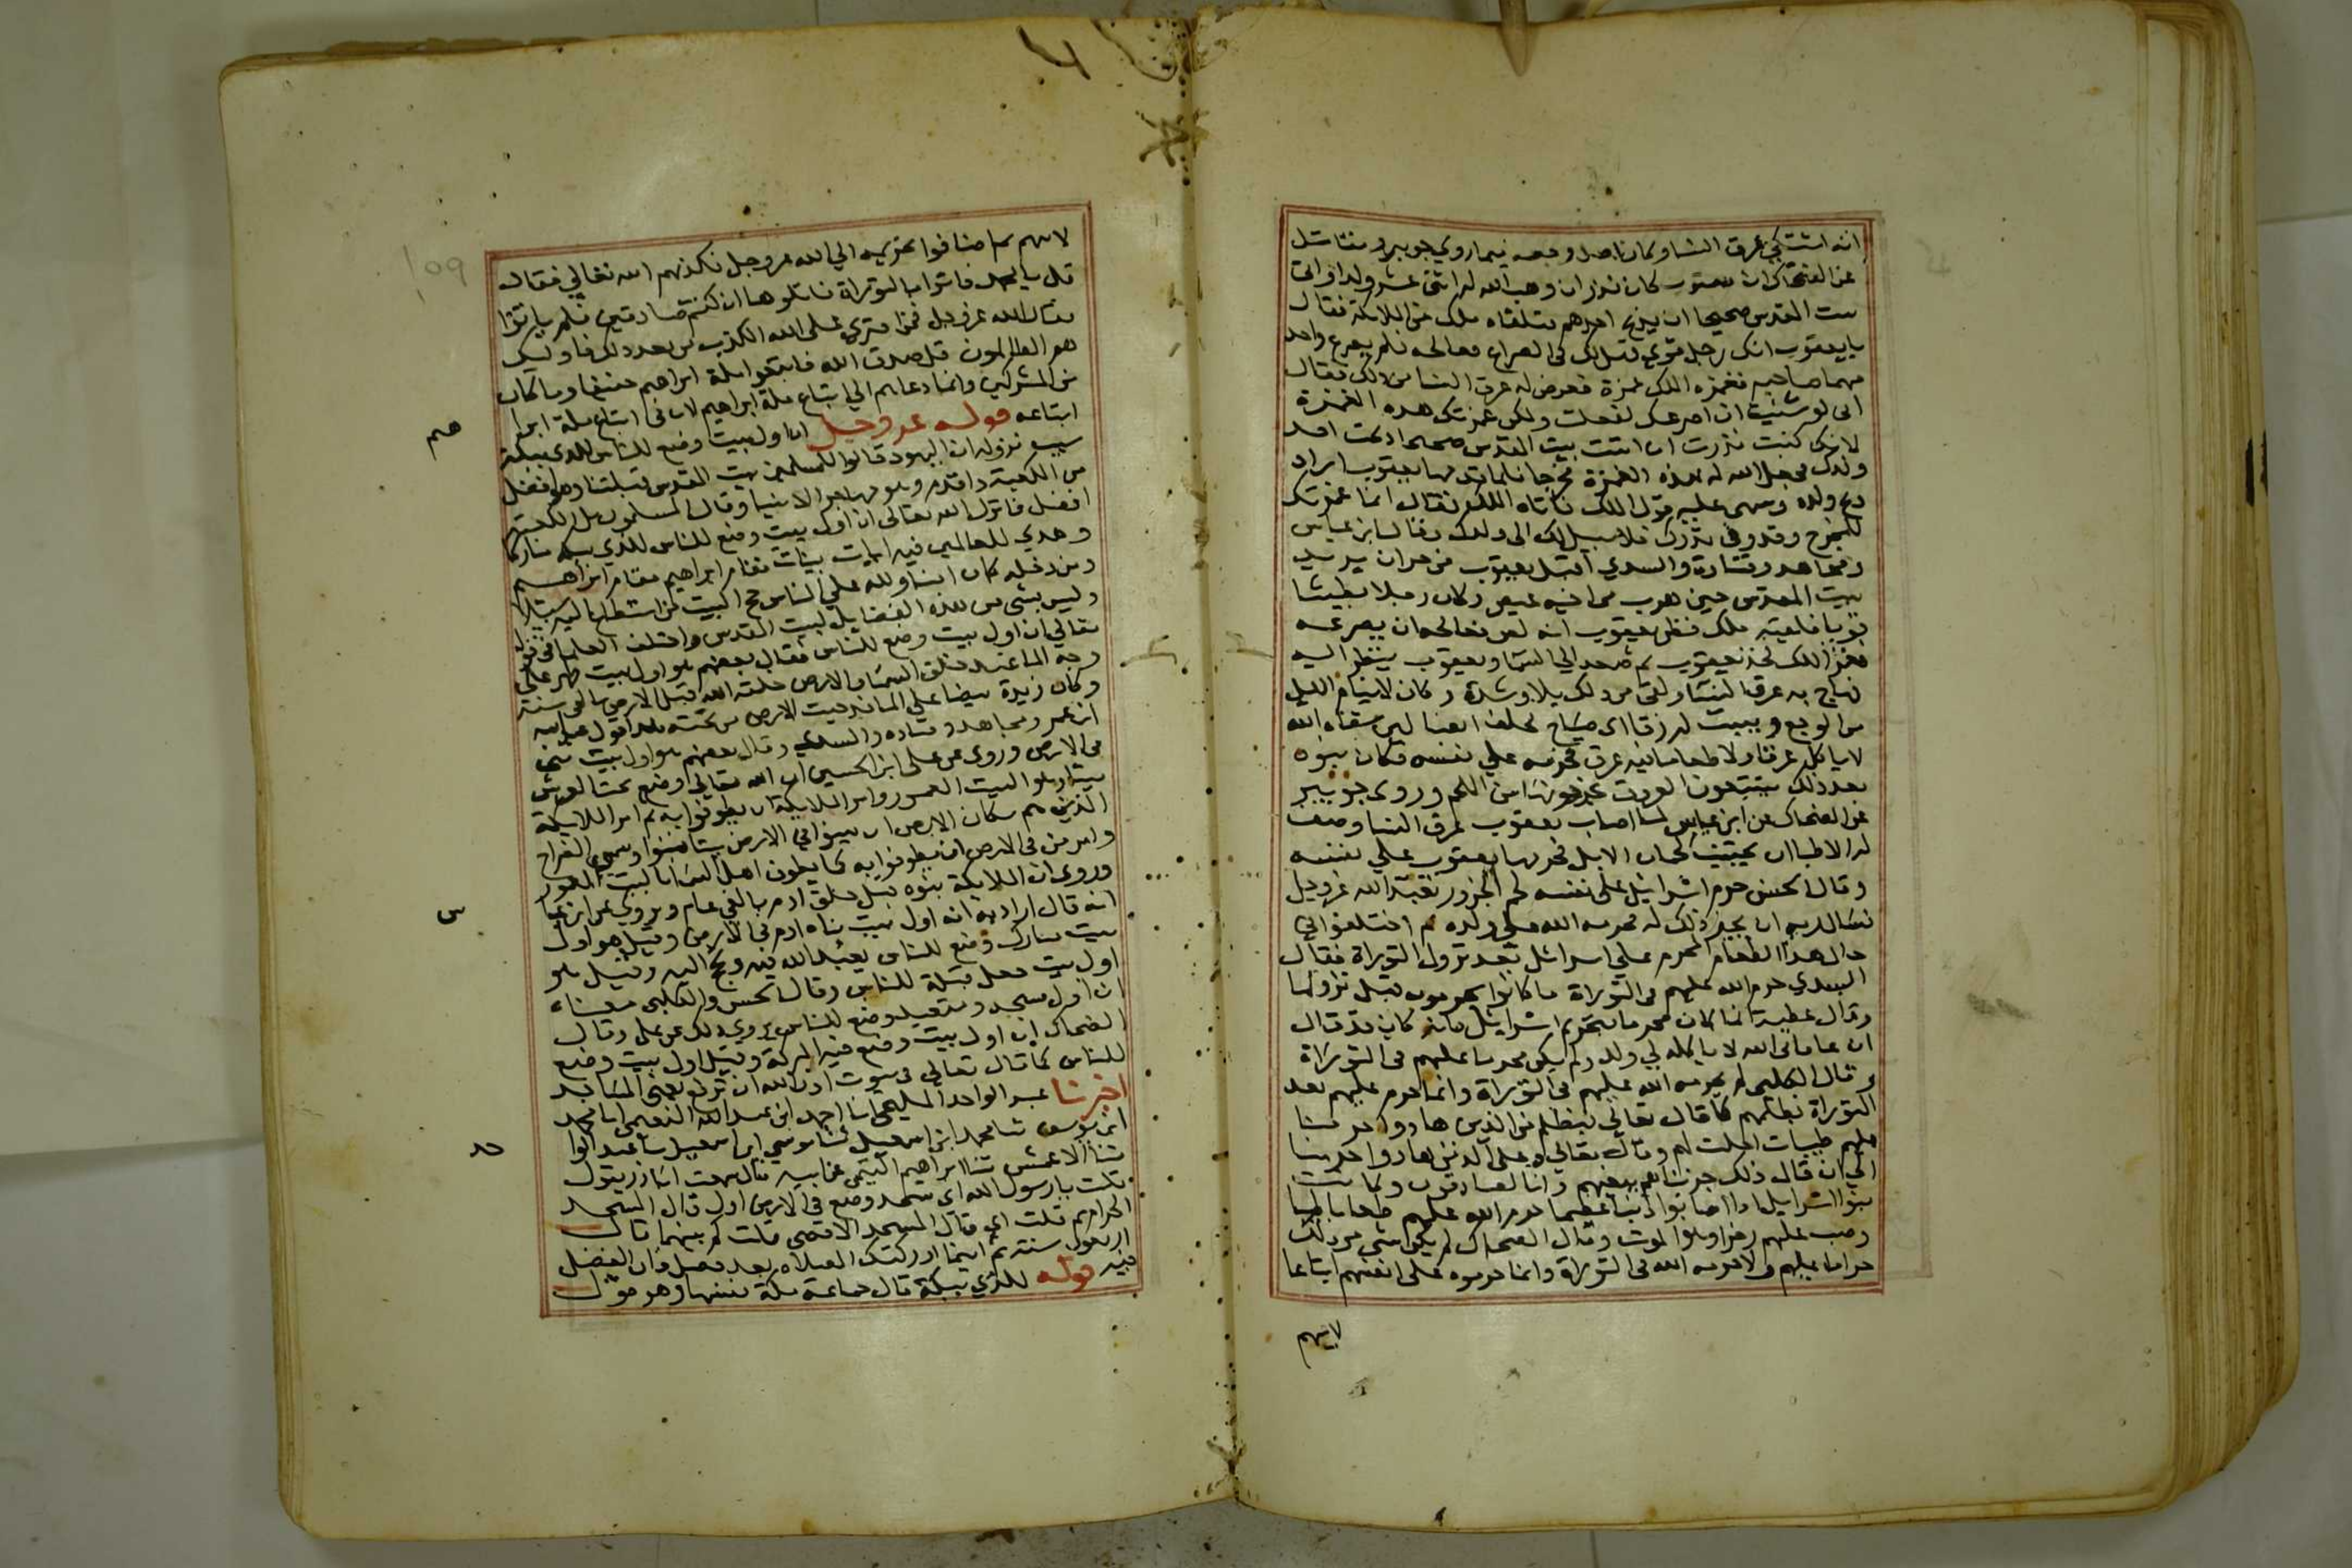 انه اشتكى عرق النسا وكان اصل وجعه فيما روى جويبر ومقاتل
عن الضحاك ان يعقوب كان نذر ان وهب الله له اثنى عشر ولدا واتى
بيت المقدس صحيحا ان يذبح اخرهم فتلقاه ملك من الملائكة فقال
يا يعقوب انك رجل قوى فهل لك فى الصراع فعالجه فلم يصرع واحد
منهما صاحبه فغمزه الملك غمزة فعرض له عرق النسا من ذلك فقال
انى لو شئت ان اصرعك لفعلت ولكن غمزتك هذه الغمزة
لانك كنت نذرت ان اتيت بيت المقدس صحيحا ذبحت اخر
ولدك فجعل الله له بهذه الغمزة مخرجا فلما قدمها يعقوب اراد
ذبح ولده ونسى عليه قول الملك فاتاه الملك فقال انما غمزتك
للمخرج وقد وفى نذرك فلا سبيل لك الى ولدك وقال ابن عباس
ومجاهد وقتادة والسدي اقبل يعقوب من حران يريد
بيت المقدس حين هرب من اخيه عيص وكان رجلا بطيشا
قويا فلقيه ملك فظن يعقوب انه لص فعالجه ان يصرعه
فغمز الملك فخذ يعقوب ثم صعد الى السما ويعقوب ينظر اليه
فهاج به عرق النسا ولقى من ذلك بلا وشدة وكان لا ينام الليل
من الوجع ويبيت له زقا اى صياح فحلف يعقوب لين شفاه الله
لا ياكل عرقا ولا طعاما فيه عرق فحرمه على نفسه فكان بنوه
بعد ذلك يتتبعون العروق يخرجونها من اللحم وروى جويبر
عن الضحاك عن ابن عباس لما اصاب يعقوب عرق النسا وصف
له الاطبا ان يجتنب لحمان الابل فحرمها يعقوب على نفسه
وقال الحسن حرم اسرائيل على نفسه لحم الجزور تعبد الله عز وجل
فسال ربه ان يجيز ذلك له فحرمه الله على ولده ثم اختلفوا فى
حال هذا الطعام المحرم على اسرائيل بعد نزول التوراة فقال
السدي حرم الله عليهم فى التوراة ما كانوا يحرمون قبل نزولها
وقال عطية انما كان محرما بتحريم اسرائيل فانه كان قد قال
ان عافانى الله لا ياكله لي ولد ولم يكن محرما عليهم فى التوراة
وقال الكلبى لم يحرمه الله عليهم فى التوراة وانما حرم عليهم بعد
التوراة بظلمهم كما قال تعالى فبظلم من الذين هادوا حرمنا
عليهم طيبات احلت لهم وقال تعالى وعلى الذين هادوا حرمنا
الى ان قال ذلك جزيناهم ببغيهم وانا لصادقون وكانت
بنوا اسرائيل اذا اصابوا ذنبا عظيما حرم الله عليهم طعاما طيبا
وصب عليهم رجزا وهو الموت وقال الضحاك لم يكن شى من ذلك
حراما عليهم ولا حرمه الله فى التوراة وانما حرموه على انفسهم اتباعا
لابيهم
لابيهم ثم اضافوا تحريمه الى الله عز وجل فكذبهم الله تعالى فقال
قل يا محمد فاتوا بالتوراة فاتلوها ان كنتم صادقين فلم ياتوا
فقال الله عز وجل فمن افترى على الله الكذب من بعد ذلك فاوليك
هم الظالمون قل صدق الله فاتبعوا ملة ابراهيم حنيفا وما كان
من المشركين وانما دعاهم الى اتباع ملة ابراهيم لان فى اتباع ملة ابراهيم
اتباعه قوله عز وجل ان اول بيت وضع للناس للذى ببكة
سبب نزوله ان اليهود قالوا للمسلمين بيت المقدس قبلتنا وهو افضل
من الكعبة واقدم وهو مهاجر الانبيا وقال المسلمون بل الكعبة
افضل فانزل الله تعالى ان اول بيت وضع للناس للذي ببكة مباركا
وهدي للعالمين فيه ايات بينات مقام ابراهيم
ومن دخله كان امنا ولله على الناس حج البيت من استطاع اليه سبيلا
وليس بشى من هذه الفضايل لبيت المقدس واختلف العلما فى قوله
تعالى ان اول بيت وضع للناس فقال بعضهم هو اول بيت ظهر على
وجه الما عند خلق السما والارض خلقه الله قبل الارض بالفى سنة
وكان زبدة بيضا على الما فدحيت الارض من تحته هذا قول عبد الله
ابن عمر ومجاهد وقتاده والسدي وقال بعضهم هو اول بيت بنى
فى الارض وروى عن على ابن الحسين ان الله تعالى وضع تحت العرش
بيتا وهو البيت المعمور وامر الملايكة ان يطوفوا به ثم امر الملايكة
الذين هم سكان الارض ان يبنوا فى الارض بيتا فبنوا وسمى الضراح
وامر من فى الارض ان يطوفوا به كما يطوف اهل السما بالبيت المعمور
وروى ان الملايكة بنوه قبل خلق ادم بالفى عام ويروي عن ابن عباس
انه قال اراد به انه اول بيت بناه ادم فى الارض وقيل هو اول
بيت مبارك وضع للناس يعبد الله فيه ويحج اليه وقيل هو
اول بيت جعل قبلة للناس وقال الحسن والكلبى معناه
ان اول مسجد ومتعبد وضع للناس يروي ذلك عن على وقال
الضحاك ان اول بيت وضع فيه البركة وقيل اول بيت وضع
للناس كما قال تعالى فى بيوت اذن الله ان ترفع يعنى المساجد
اخبرنا عبد الواحد المليحى انا احمد ابن عبد الله النعيمى انا محمد
ابن يوسف ثنا محمد ابن اسمعيل ثنا موسى ابن اسمعيل ثنا عبد الواحد
ثنا الاعمش ثنا ابراهيم التيمى عن ابيه قال سمعت ابا ذر يقول
قلت يا رسول الله اى مسجد وضع فى الارض اول قال المسجد
الحرام ثم قلت اى قال المسجد الاقصى قلت كم بينهما قال
اربعون سنة ثم اينما ادركتك الصلاه بعد فصل فان الفضل
فيه قوله للذي ببكة قال جماعة مكة نفسها وهو قول